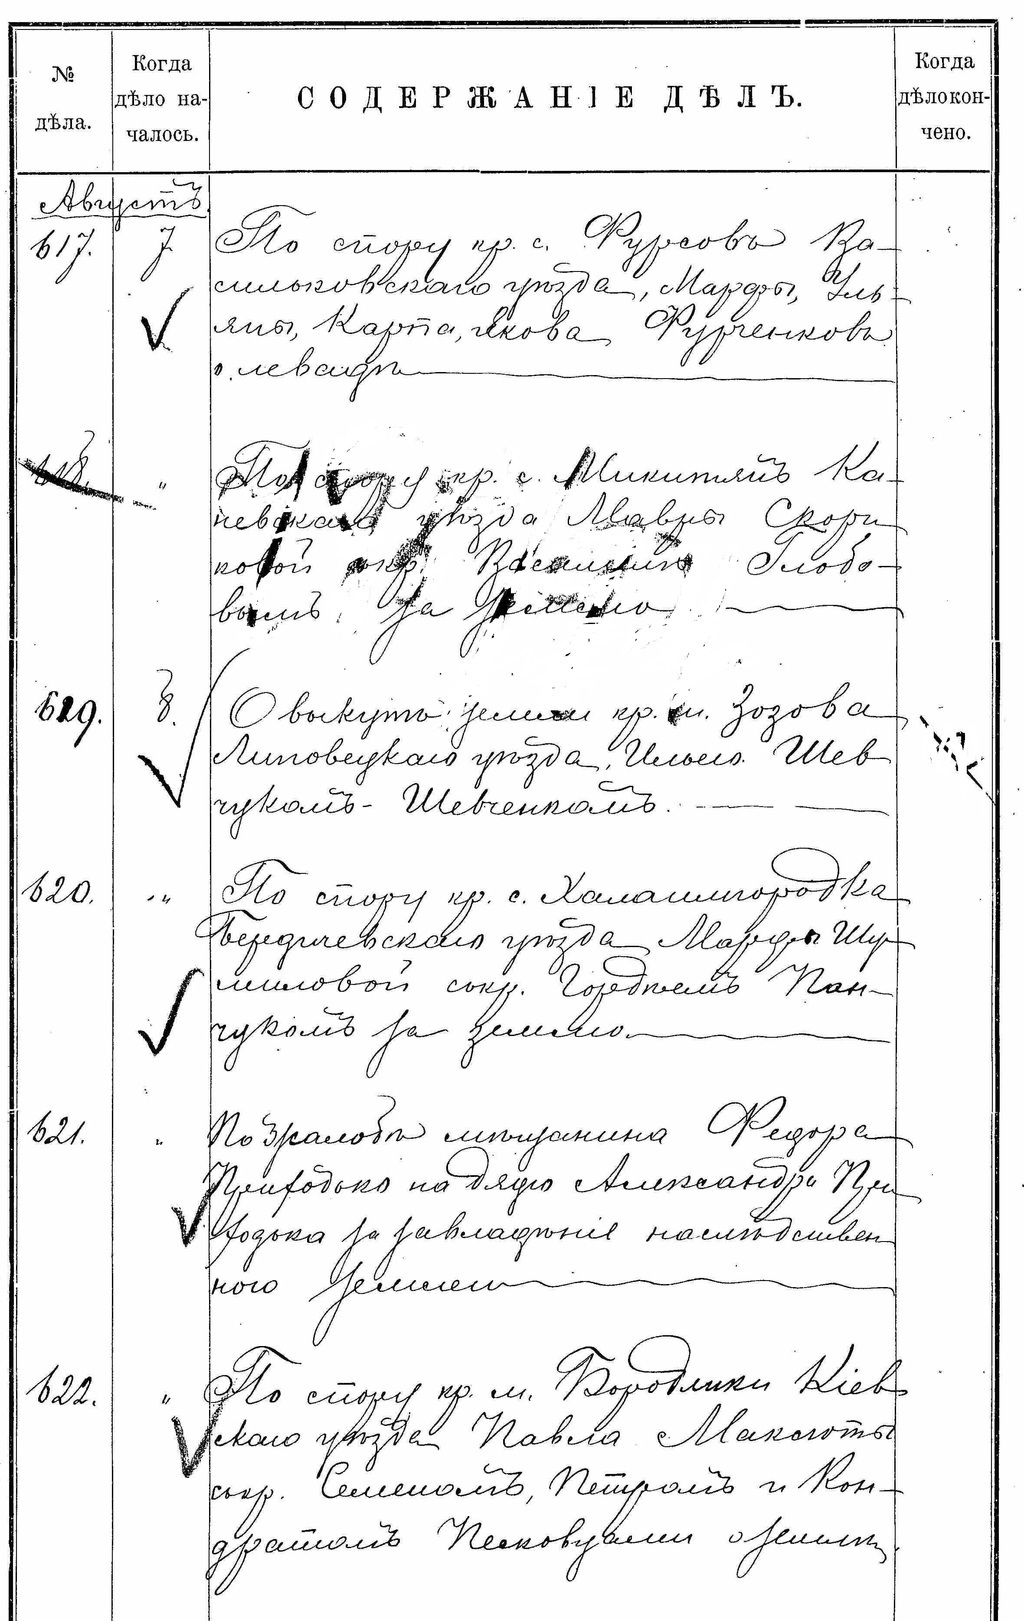 № дѣла.
Когда дѣло на-чалось.
СОДЕРЖАНІЕ ДѢЛЪ.
Когда дѣло кон-чено.
Августъ
617. 7. По спору кр. с. Фурсовъ Ва-
сильковскаго уѣзда, Марфы, Уль-
яны, Карпа, Якова Фурченковъ
о левадѣ
618. " По спору кр. с. Микитянъ Ка-
невскаго уѣзда Мавры Скори
ковой съ кр. Василіемъ Глобо-
вымъ за землю
629. 8. О выкупѣ земли кр. м. Зозова
Липовецкаго уѣзда, Ильею Шев
чукомъ - Шевченкомъ.
620. " По спору кр. с. Халаимгородка
Бердичевскаго уѣзда Марфы Шу-
миловой съ кр. Гордѣемъ Пан-
чукомъ за землю
621. " По жалобѣ мѣщанина Федора
Приходько на дядю Александра При
ходька за завладѣніе наслѣдствен
ного землею
622. " По спору кр. м. Бородянки Кіев
скаго уѣзда Павла Максюты
съ кр. Семеномъ, Петромъ и Кон-
дратомъ Песковцами о землѣ